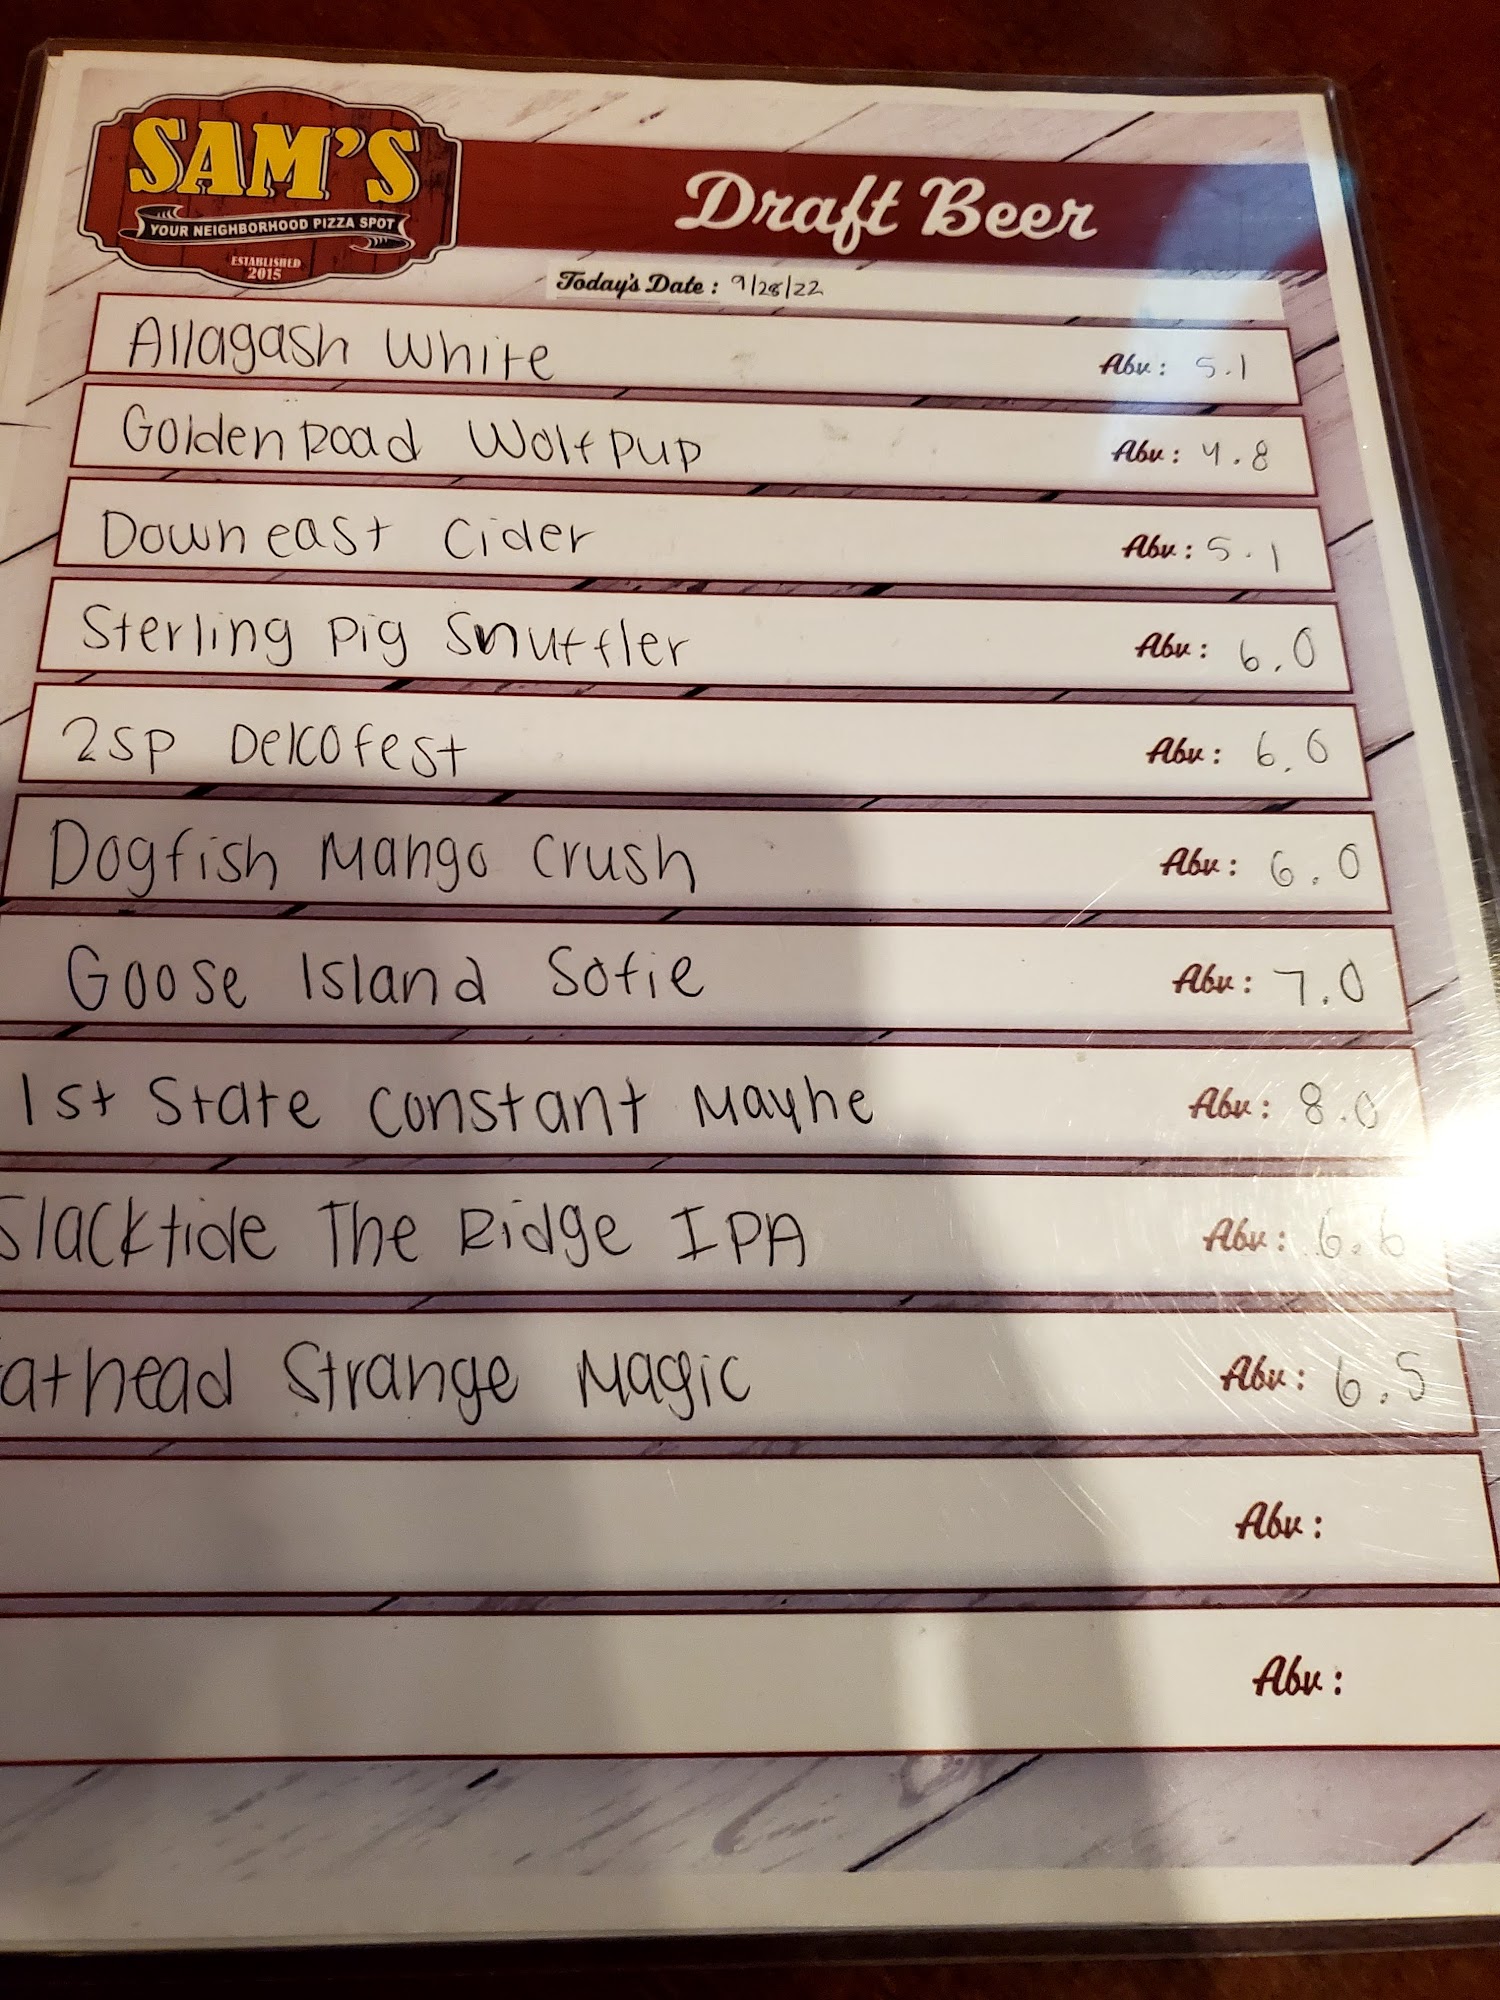 SAM'S
YOUR NEIGHBORHOOD PIZZA SPOT
ESTABLISHED
2015
Draft Beer
Today's Date : 9/28/22
Allagash White Abv : 5.1
Golden Road Wolf Pup Abv : 4.8
Downeast Cider Abv : 5.1
Sterling Pig Snuffler Abv : 6.0
2sp Delcofest Abv : 6.0
Dogfish Mango Crush Abv : 6.0
Goose Island Sofie Abv : 7.0
1st State Constant Mayhe Abv : 8.0
Slacktide The Ridge IPA Abv : 6.6
athead Strange Magic Abv : 6.5
Abv :
Abv :